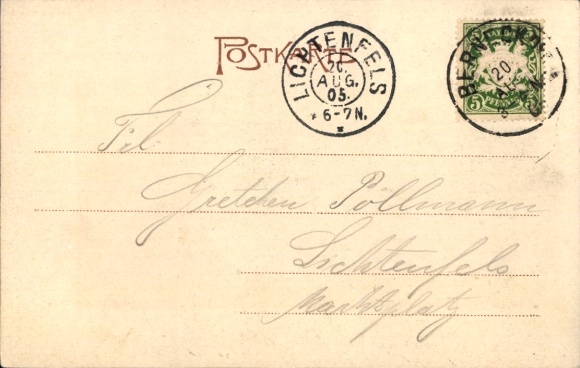 POSTKARTE
LICHTENFELS
20.
AUG.
05.
* 6-7N.
20.
5 PFENNIG
Frl.
Gretchen Pöllmann
Lichtenfels
Marktplatz